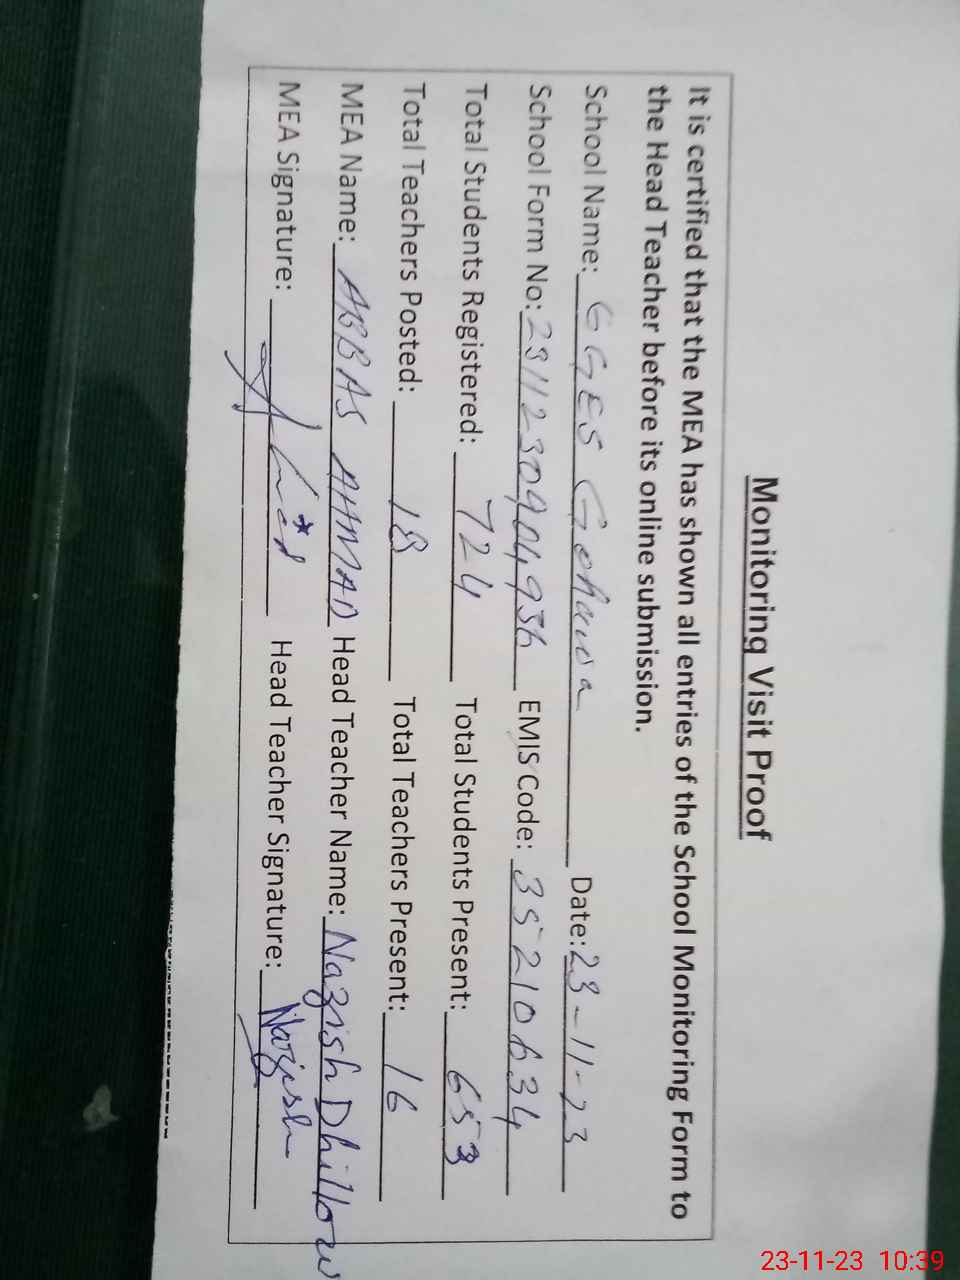 Monitoring Visit Proof
It is certified that the MEA has shown all entries of the School Monitoring Form to
the Head Teacher before its online submission.
School Name: GGES Gohawa Date: 23-11-23
School Form No: 231123090404936 EMIS Code: 35210634
Total Students Registered: 724 Total Students Present: 653
Total Teachers Posted: 18 Total Teachers Present: 16
MEA Name: ABBAS AHMAD Head Teacher Name: Nazish Dhillow
MEA Signature: Head Teacher Signature: Nazish
23-11-23 10:39